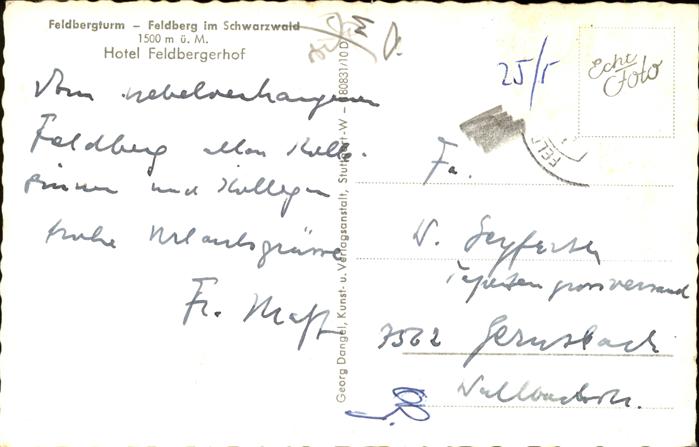 Feldbergturm – Feldberg im Schwarzwald
1500 m ü. M.
Hotel Feldbergerhof
Vom nebelverhangenen
Feldberg allen Kolle-
ginnen und Kollegen
frohe Urlaubsgrüsse
Fr.
Georg Dangel, Kunst- u. Verlagsanstalt, Stuttgart-W – 80831/10 D
25/5
Echt
Foto
FEL
Fa.
W. Seyfarth
Tapetengrossversand
7562 Gernsbach